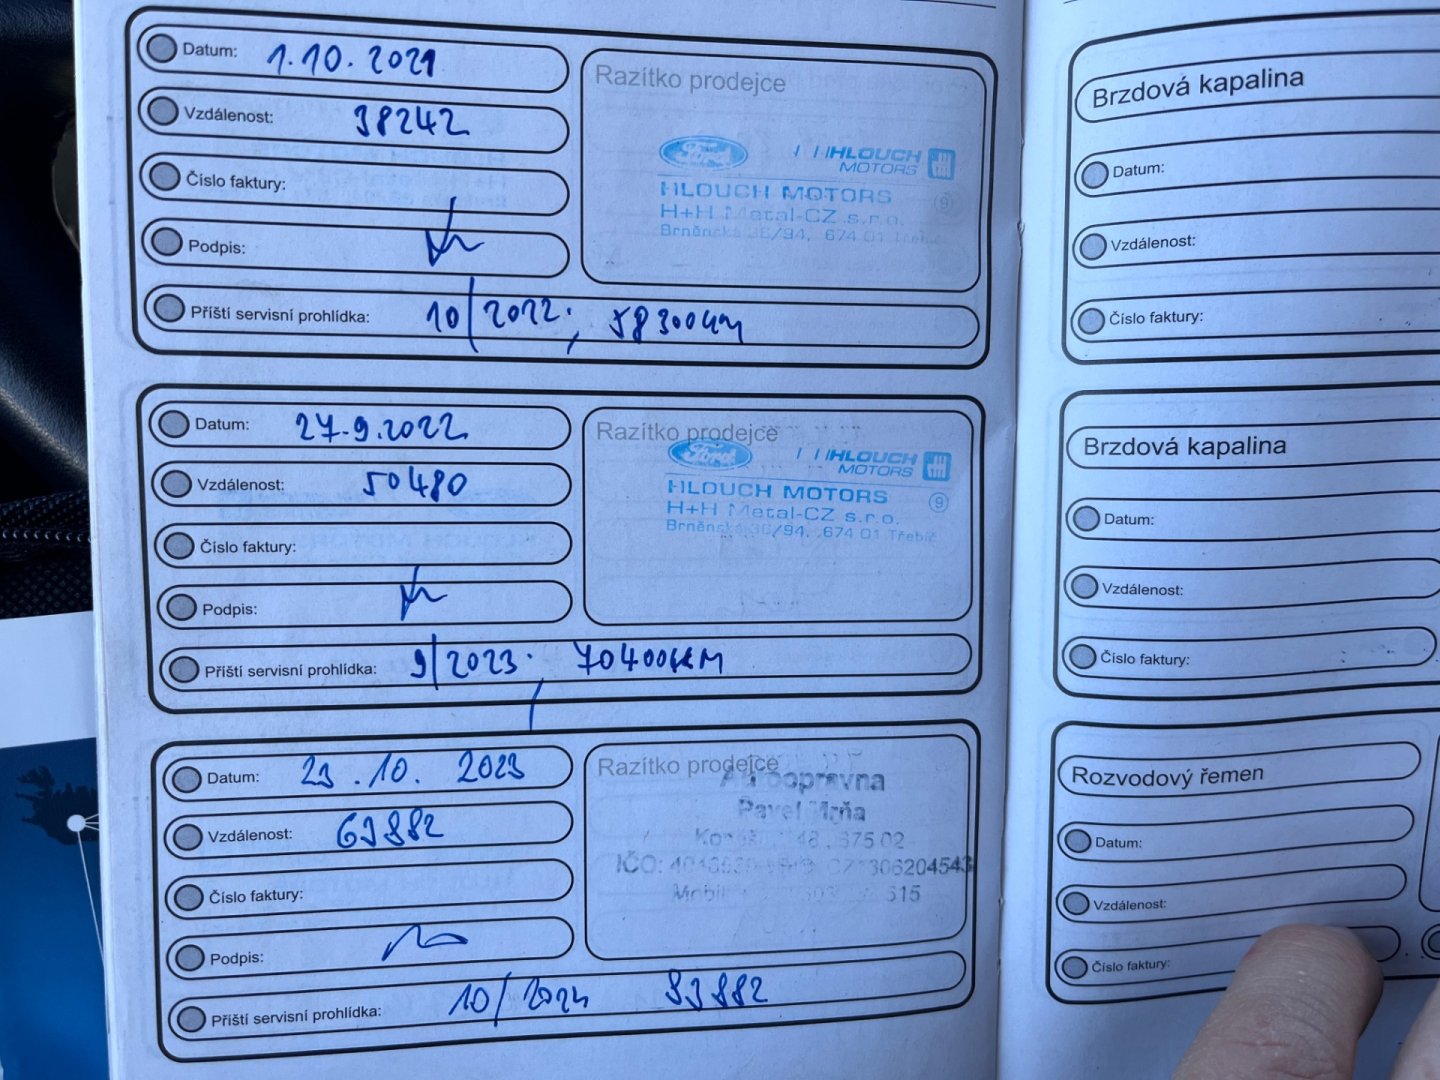 Datum: 1.10.2021
Vzdálenost: 38242
Číslo faktury:
Podpis:
Příští servisní prohlídka: 10/2022, 58300km
Razítko prodejce
Ford HLOUCH MOTORS
HLOUCH MOTORS
H+H Metal-CZ s.r.o. 9
Brněnská 36/94, 674 01 Třebíč
Datum: 27.9.2022
Vzdálenost: 50480
Číslo faktury:
Podpis:
Příští servisní prohlídka: 9/2023, 70400km
Razítko prodejce
Ford HLOUCH MOTORS
HLOUCH MOTORS 9
H+H Metal-CZ s.r.o.
Brněnská 36/94, 674 01 Třebíč
Datum: 23.10. 2023
Vzdálenost: 63882
Číslo faktury:
Podpis:
Příští servisní prohlídka: 10/2024 83882
Razítko prodejce
Autoopravna
Pavel Mrňa
675 02
IČO:
Mobil
Brzdová kapalina
Datum:
Vzdálenost:
Číslo faktury:
Brzdová kapalina
Datum:
Vzdálenost:
Číslo faktury:
Rozvodový řemen
Datum:
Vzdálenost:
Číslo faktury: